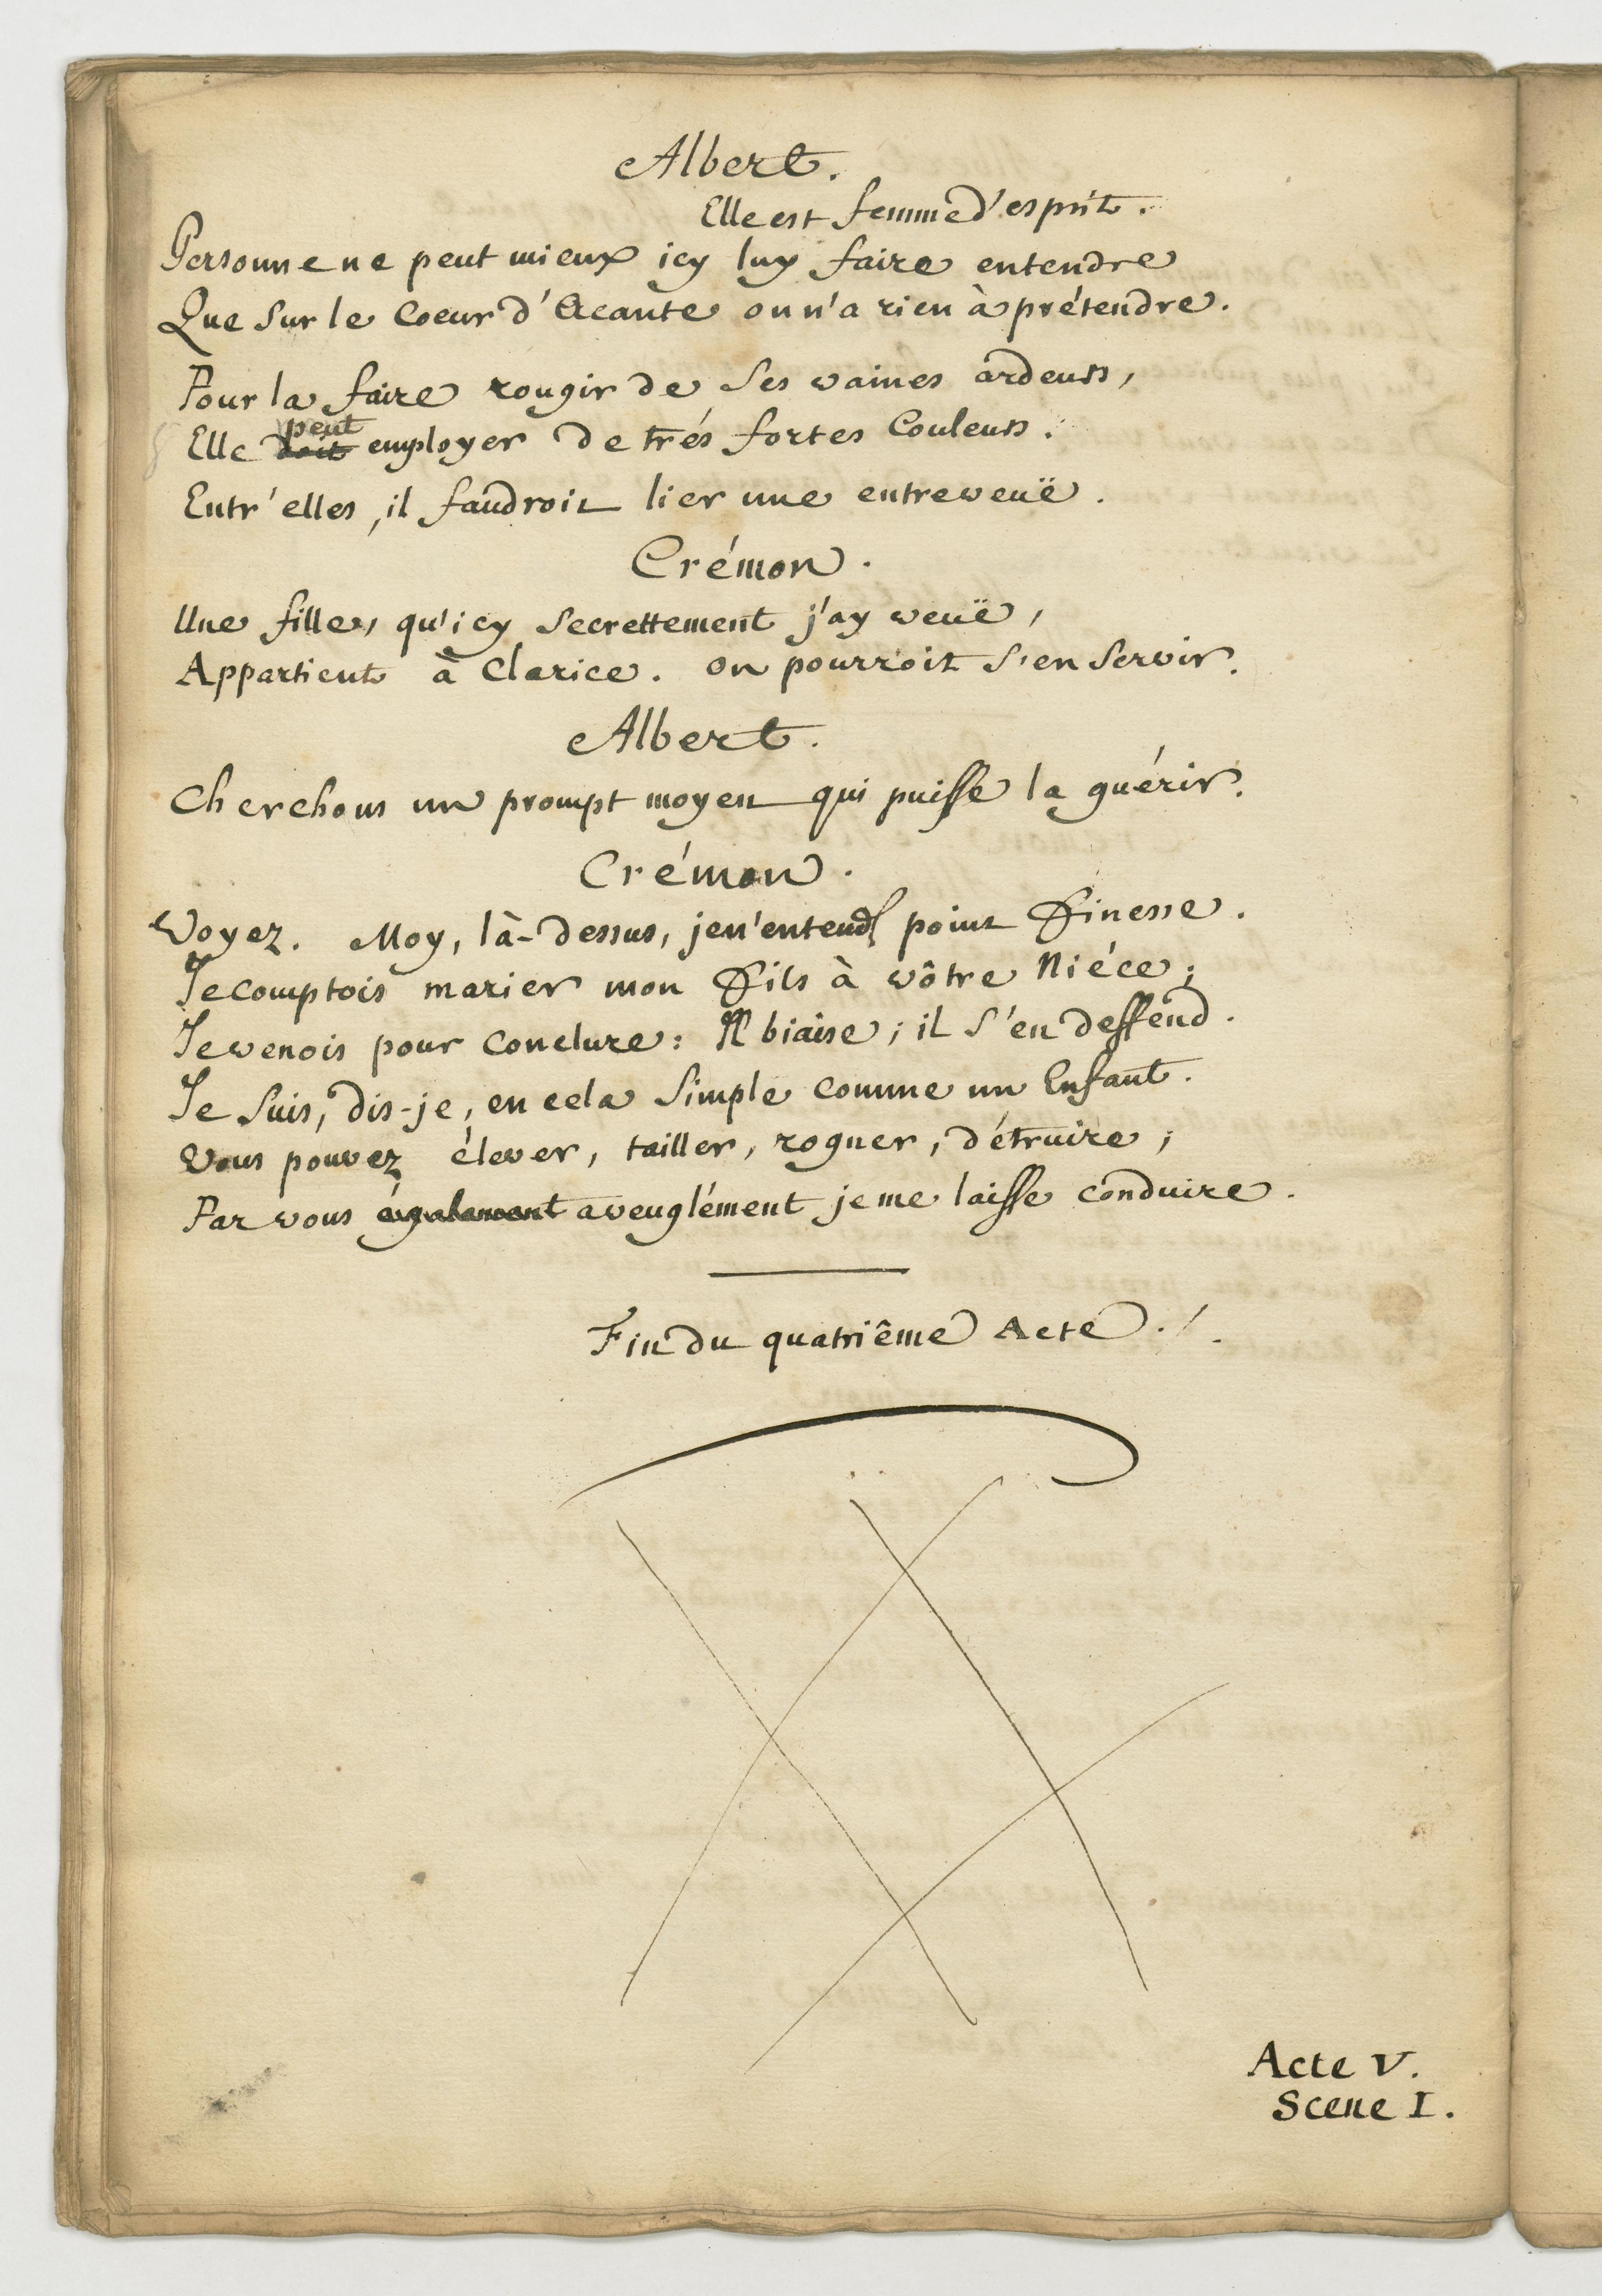 Albert.
Elle est femme d'esprit.
Personne ne peut mieux icy luy faire entendre
Que sur le coeur d'Acante on n'a rien à prétendre.
Pour la faire rougir de ses vaines ardeurs,
peut
Elle doit employer de trés fortes couleurs.
Entr'elles, il faudroit lier une entreveuë.
Crémon.
Une fille, qu'icy secrettement j'ay veuë,
Appartient à Clarice. On pourroit s'en servir.
Albert.
Cherchons un prompt moyen qui puisse la guérir.
Crémon.
Voyez. Moy, là-dessus, je n'entends point finesse.
Je comptois marier mon Fils à vôtre Niéce;
Je venois pour conclure: Il biaise; il s'en deffend.
Je suis, dis-je, en cela simple comme un Enfant.
Vous pouvez élever, tailler, rogner, détruire;
Par vous également aveuglément je me laisse conduire.
Fin du quatriême Acte./.
Acte V.
Scene I.